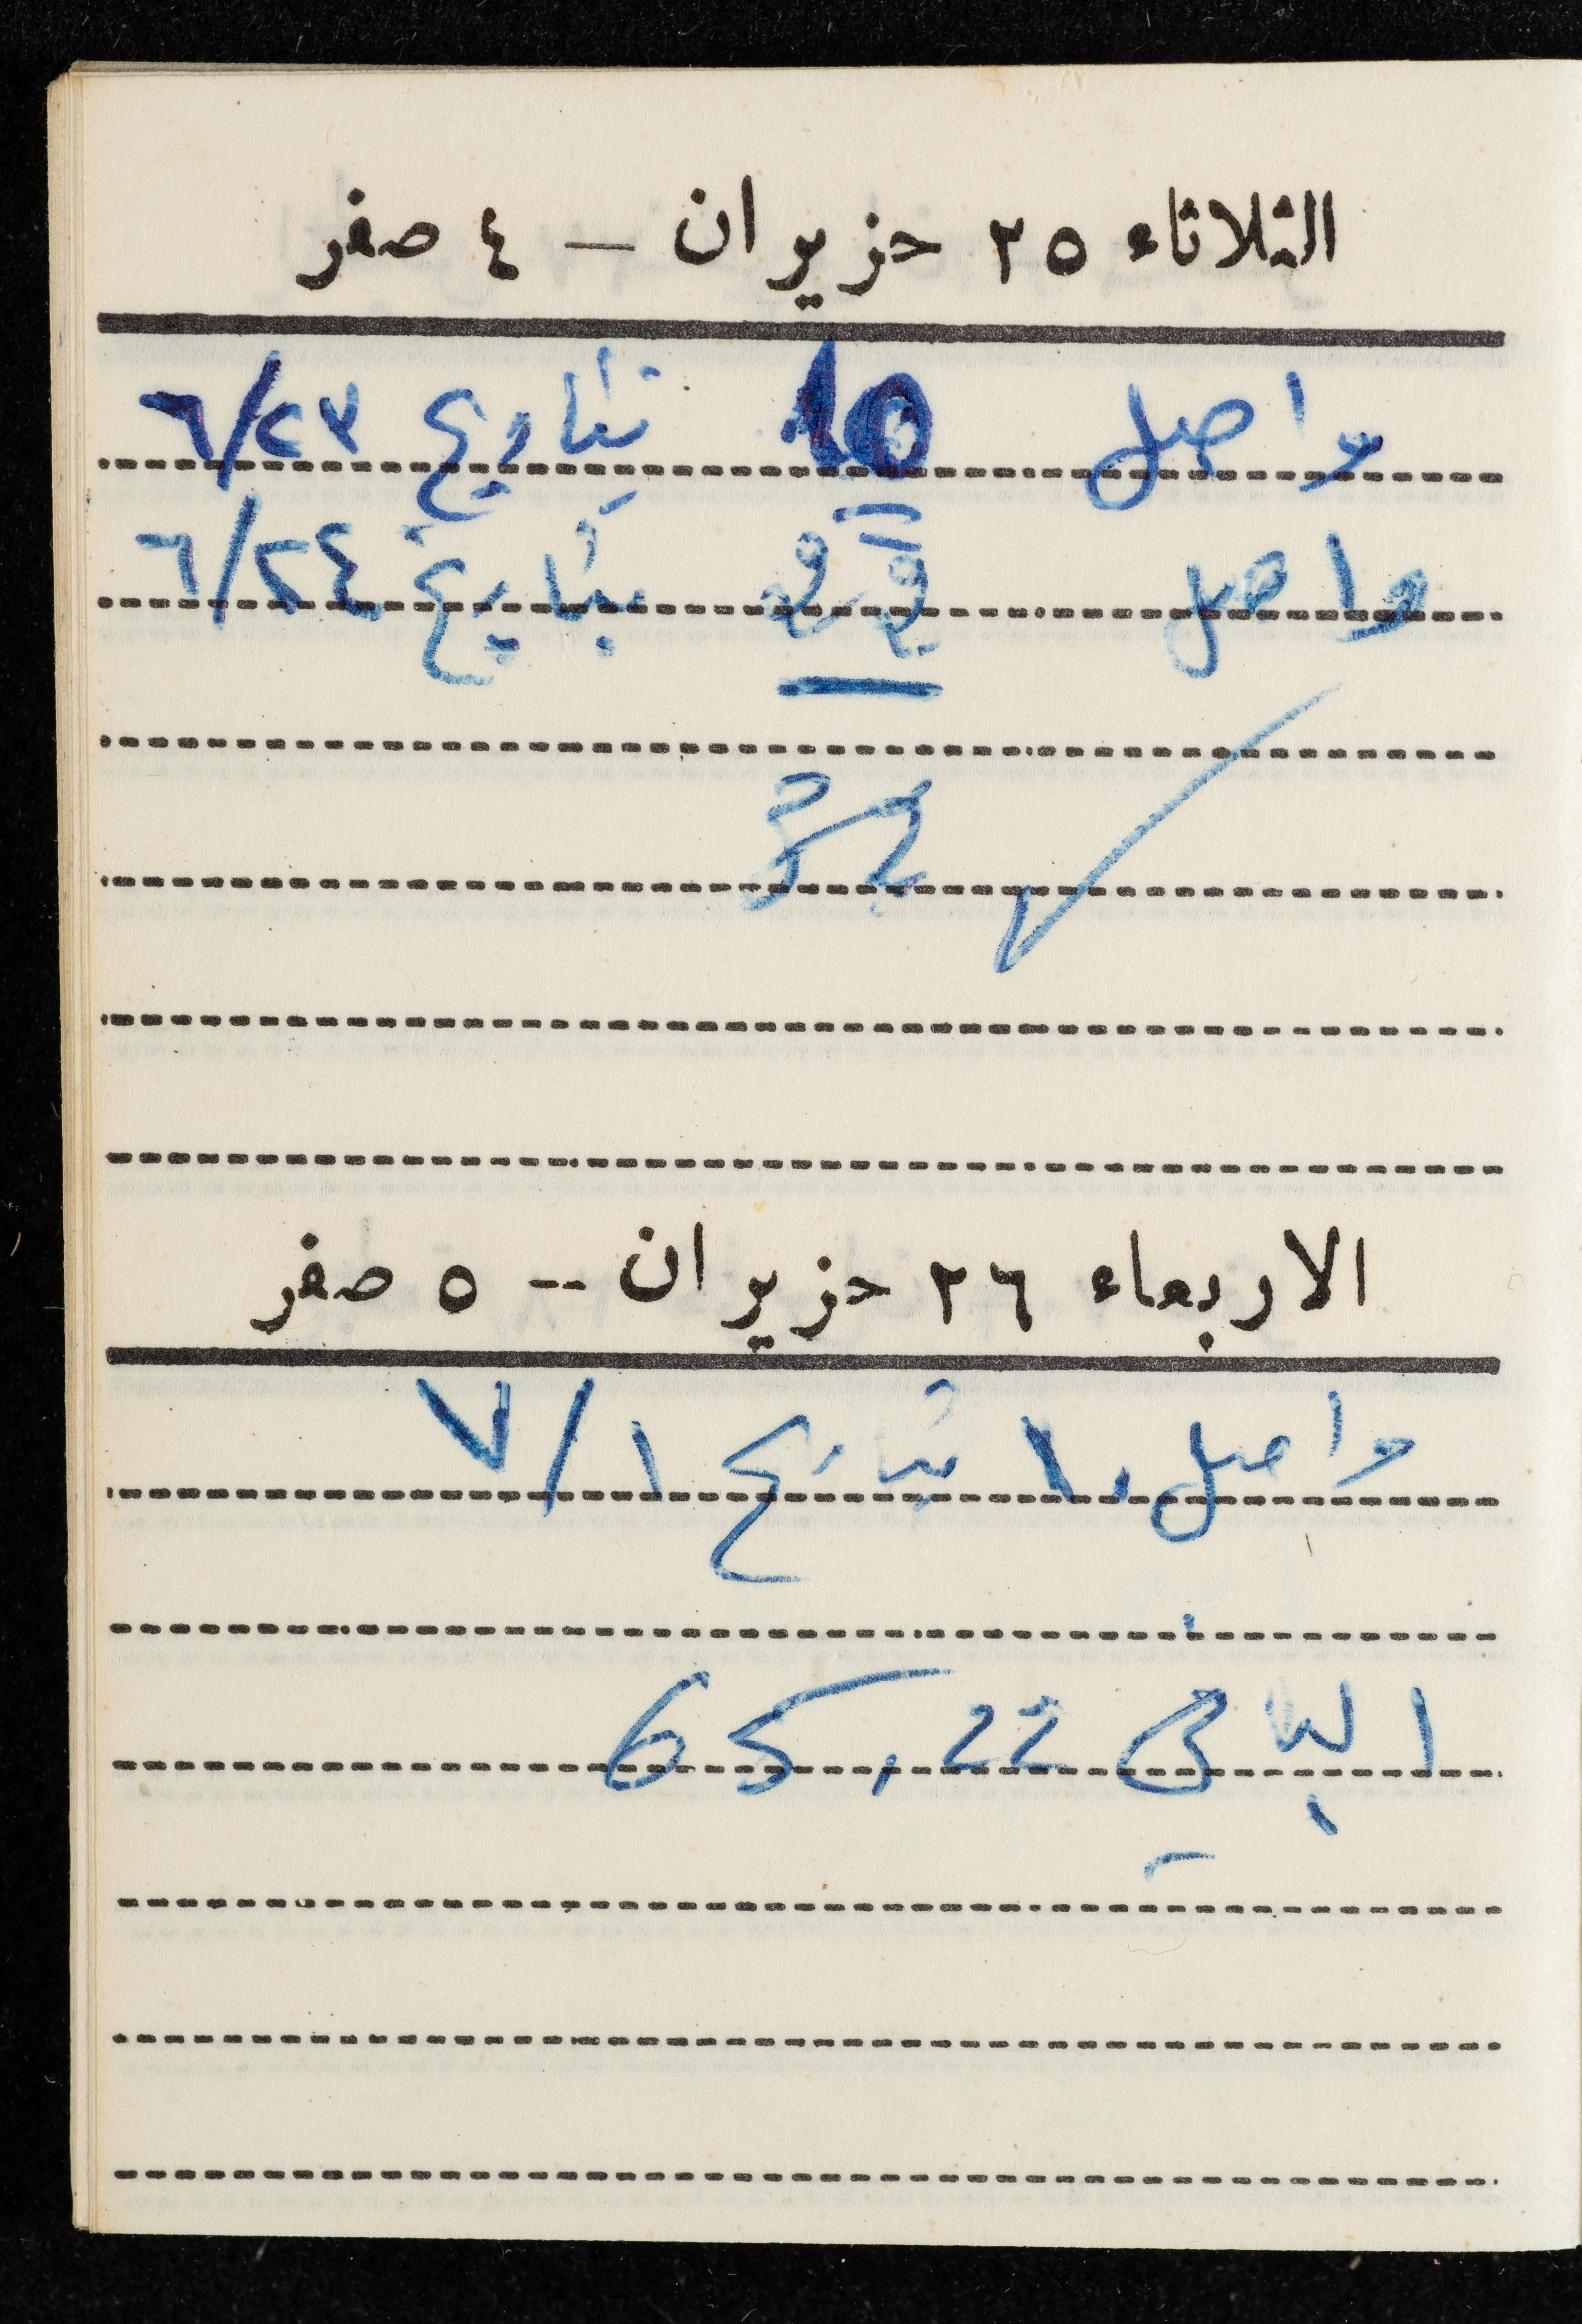 الثلاثاء ٢٥ حزيران — ٤ صفر
واصل 10 بتاريخ ٦/٢٣
واصل 22 بتاريخ ٦/٢٤
32
الاربعاء ٢٦ حزيران -- ٥ صفر
واصل ١٠ بتاريخ ٧/١
65,22